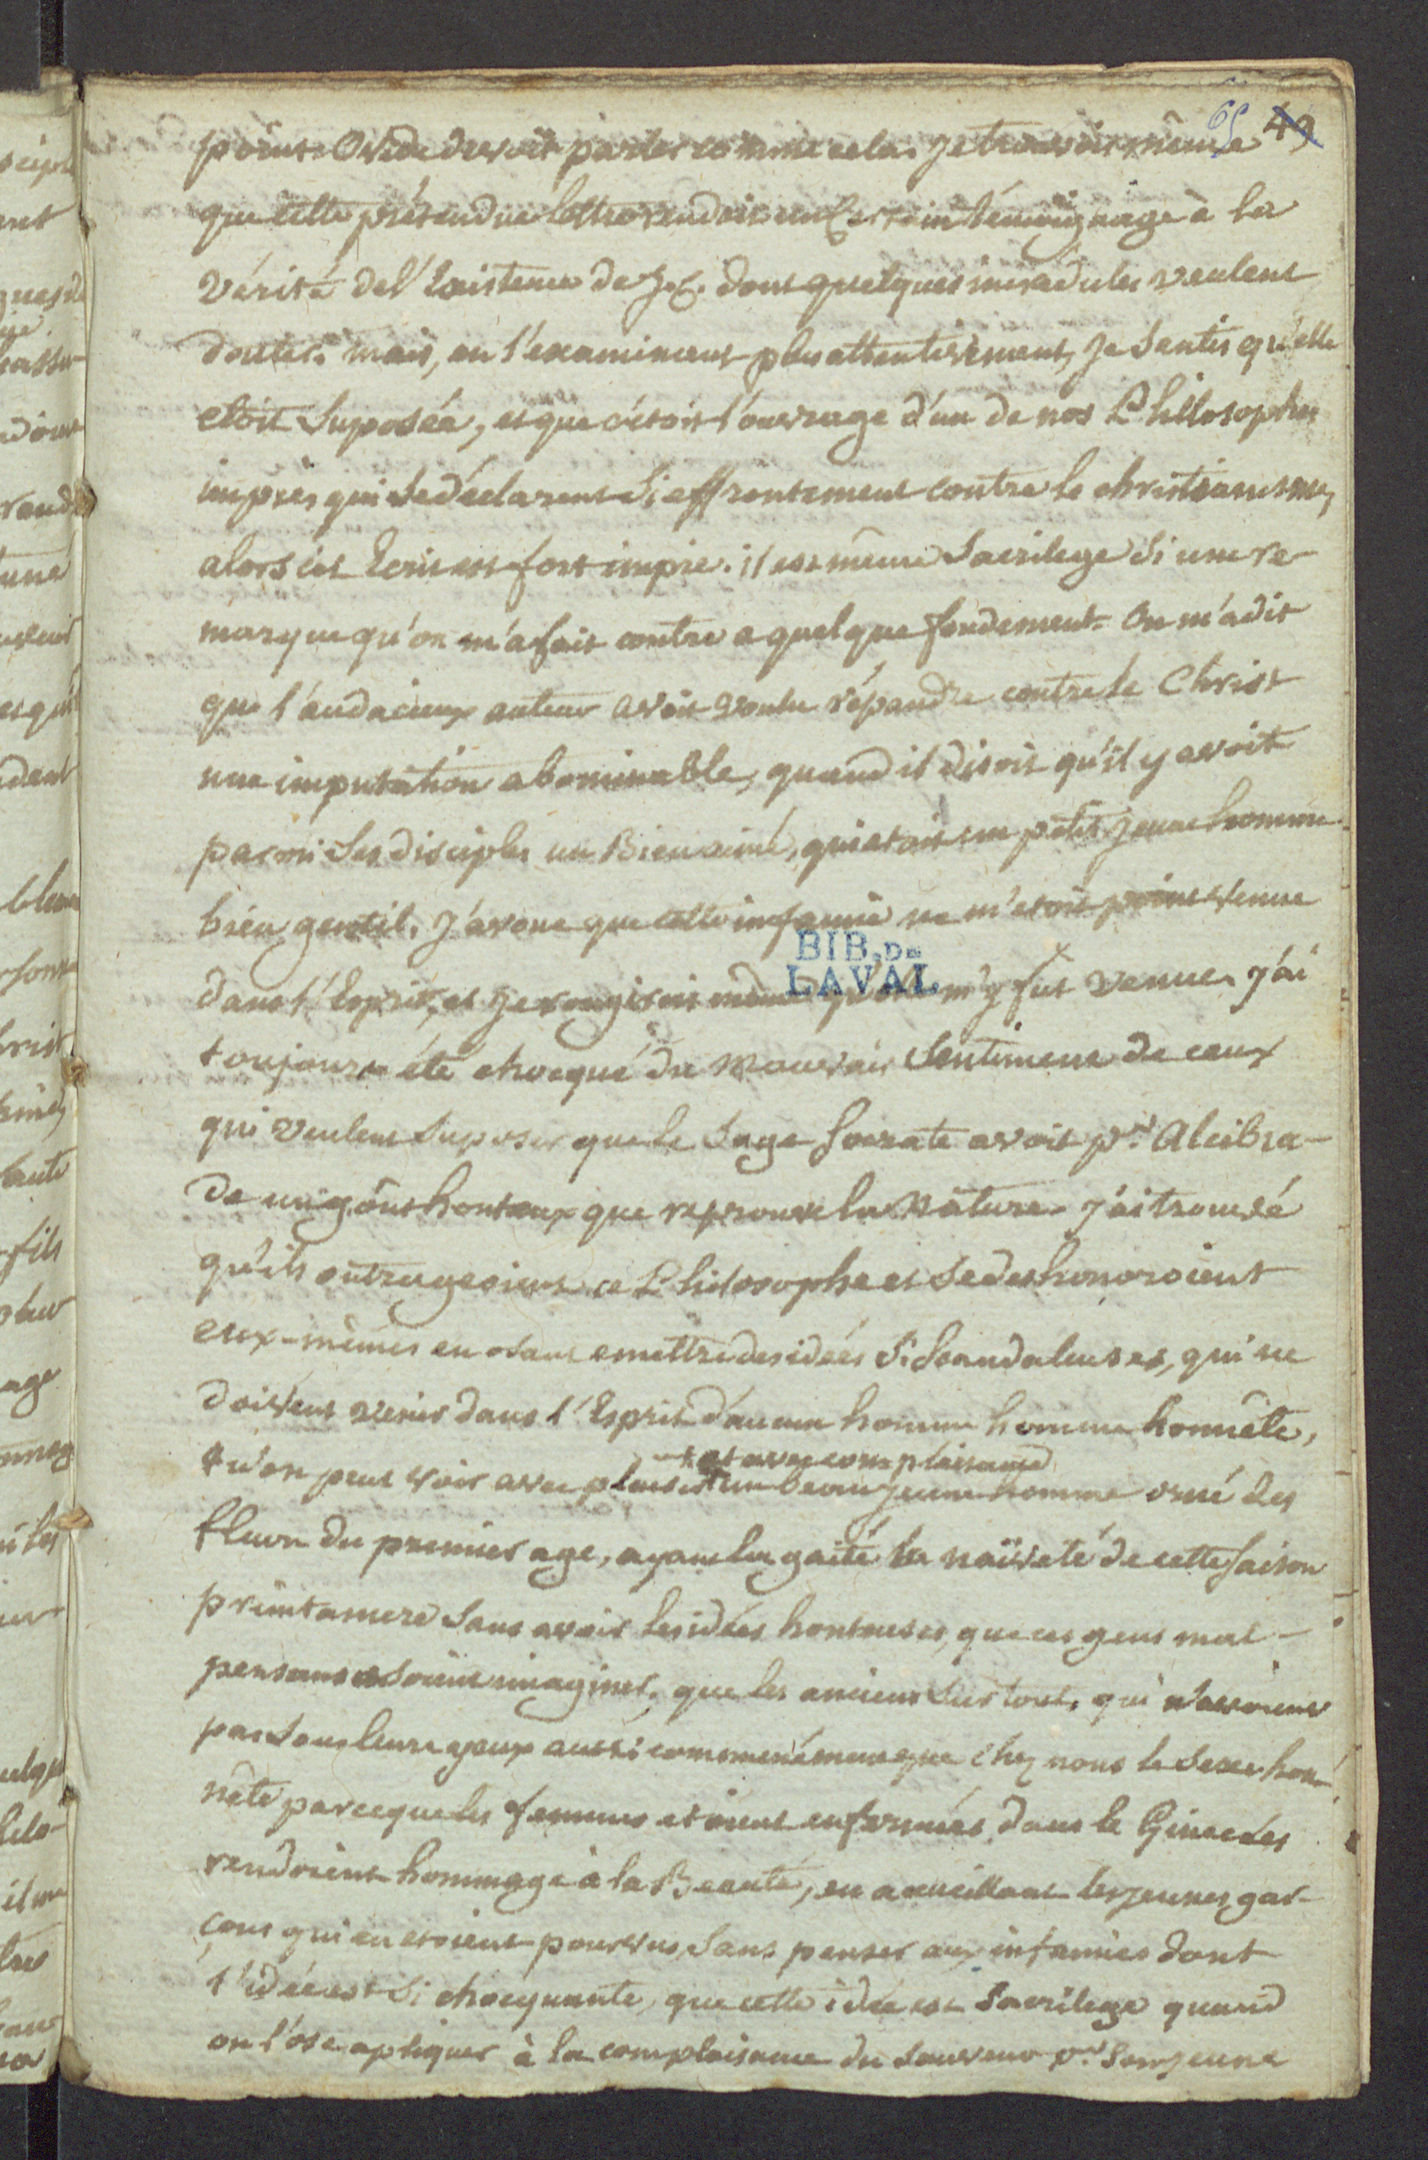 65 49
point Ovide devoit parler comme cela. Je trouvois même
que cette prétendue lettre rendoit un certain témoignage à la
vérité de l'Existence de J.C. dont quelques incredules veulent
douter. mais, en l'examinant plus attentivement, Je sentis qu'elle
etoit Suposée, et que c'étoit l'ouvrage d'un de nos Philosophes
impies qui se déclarent si effrontement contre le christianisme,
alors cet Ecrit est fort impie. il est même Sacrilege si une re-
marque qu'on m'a fait contre a quelque fondement. On m'a dit
que l'audacieux auteur avoit voulu répandre contre le Christ
une imputation abominable, quand il disoit qu'il y avoit
parmi ses disciples un Bien aimé, qui etoit un petit jeune homme
bien gentil. J'avoue que cette infamie ne m'etoit point venue
dans l'Esprit, et je rougirois même qu'elle m'y fut venue. J'ai
toujours été choqué du mauvais Sentiment de ceux
qui veulent suposer que le Sage Socrate avoit pr. Alcibia-
de un goût honteux que reprouve la Nature. J'ai trouvé
qu'ils outrageoient ce Philosophe et se deshonoroient
eux-mêmes en osant emettre des idées si Scandaleuses, qui ne
doivent venir dans l'Esprit d'aucun homme homme honnête,
+ et avec complaisance
qu'on peut voir avec plaisir + un beau jeune homme orné des
fleurs du premier age, ayant la gaité la naïveté de cette saison
printaniere sans avoir les idées honteuses, que ces gens mal-
pensans osoient imaginer, que les anciens sur tout, qui n'avoient
pas sous leurs yeux aussi communément que chez nous le sexe hon-
nête parceque les femmes etoient enfermées dans le Ginecée,
rendoient hommage à la Beauté, en accueillant les jeunes gar-
çons qui en etoient pourvus, sans penser aux infamies dont
l'idée est si choquante, que cette idée est Sacrilege quand
on l'ose apliquer à la complaisance du Sauveur pr. son jeune
BIB. DE
LAVAL